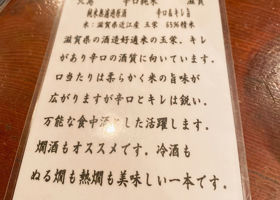 辛口純米 滋賀
純米無濾過原酒 辛口&キレ旨
米:滋賀県近江産 玉栄 65%精米
滋賀県の酒造好適米の玉栄、キレ
があり辛口の酒質に向いています。
口当たりは柔らかく米の旨味が
広がりますが辛口とキレは鋭い。
万能な食中酒として活躍します。
燗酒もオススメです。冷酒も
ぬる燗も熱燗も美味しい一本です。